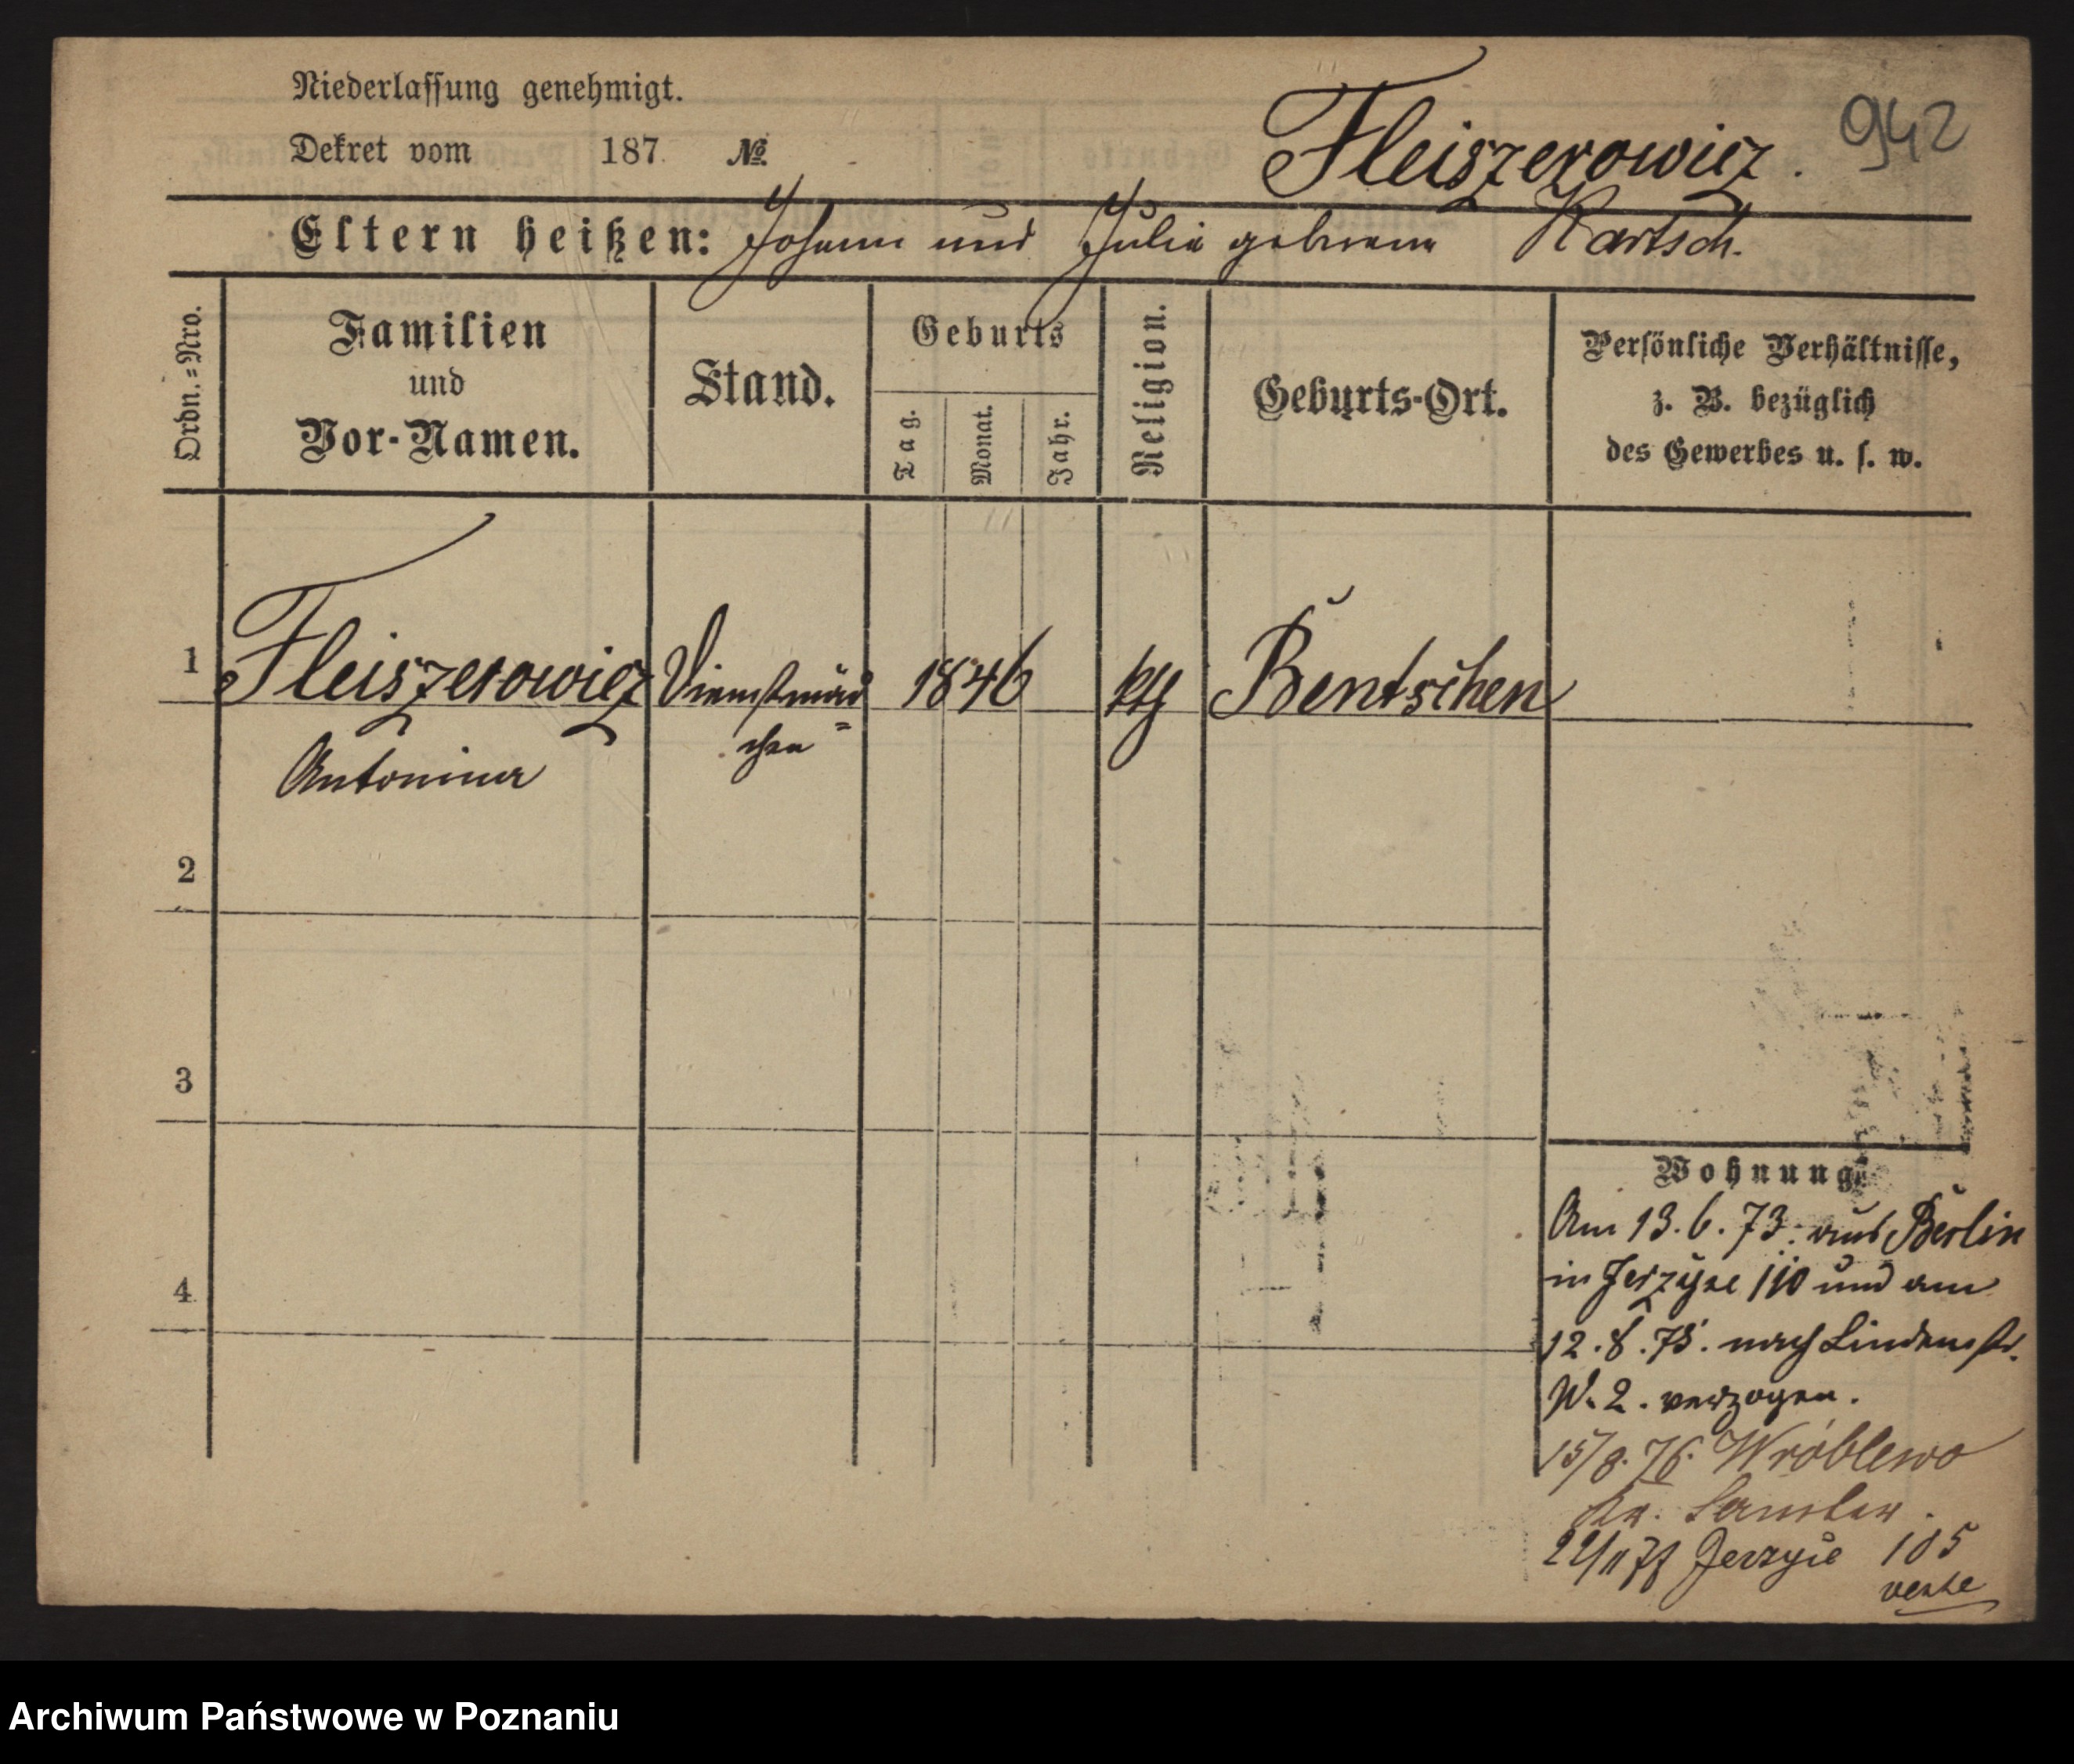 Niederlassung genehmigt.
Dekret vom 187 No.
Fleiszerowicz. 942
Eltern heißen: Johann und Julie geborene Kartsch.
Ordn.=Nro.
Familien
und
Vor-Namen.
Stand.
Geburts
Tag.
Monat.
Jahr.
Religion.
Geburts-Ort.
Persönliche Verhältnisse,
z. B. bezüglich
des Gewerbes u. s. w.
1 Fleiszerowicz Dienstmäd 1846 kth Bentschen
=
chen
Antonina
2
3
4
Wohnung
Am 13.6.73. aus Berlin
in Jerzyce 110 und am
12.8.75. nach Lindenstr.
W. 2. verzogen.
15/8.76. Wróblewo
Kr. Samter.
22/11 77 Jerzyce 105
Archiwum Państwowe w Poznaniu